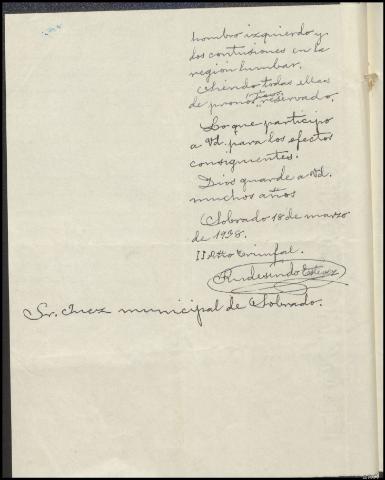 hombro izquierdo y
dos contusiones en la
región lumbar.
Siendo todas ellas
de pronostico reservado.
Lo que participo
a Vd. para los efectos
consiguientes.
Dios guarde a Vd.
muchos años
Sobrado 18 de marzo
de 1938.
II Año Triunfal.
Rudesindo Estevez
Sr. Juez municipal de Sobrado.